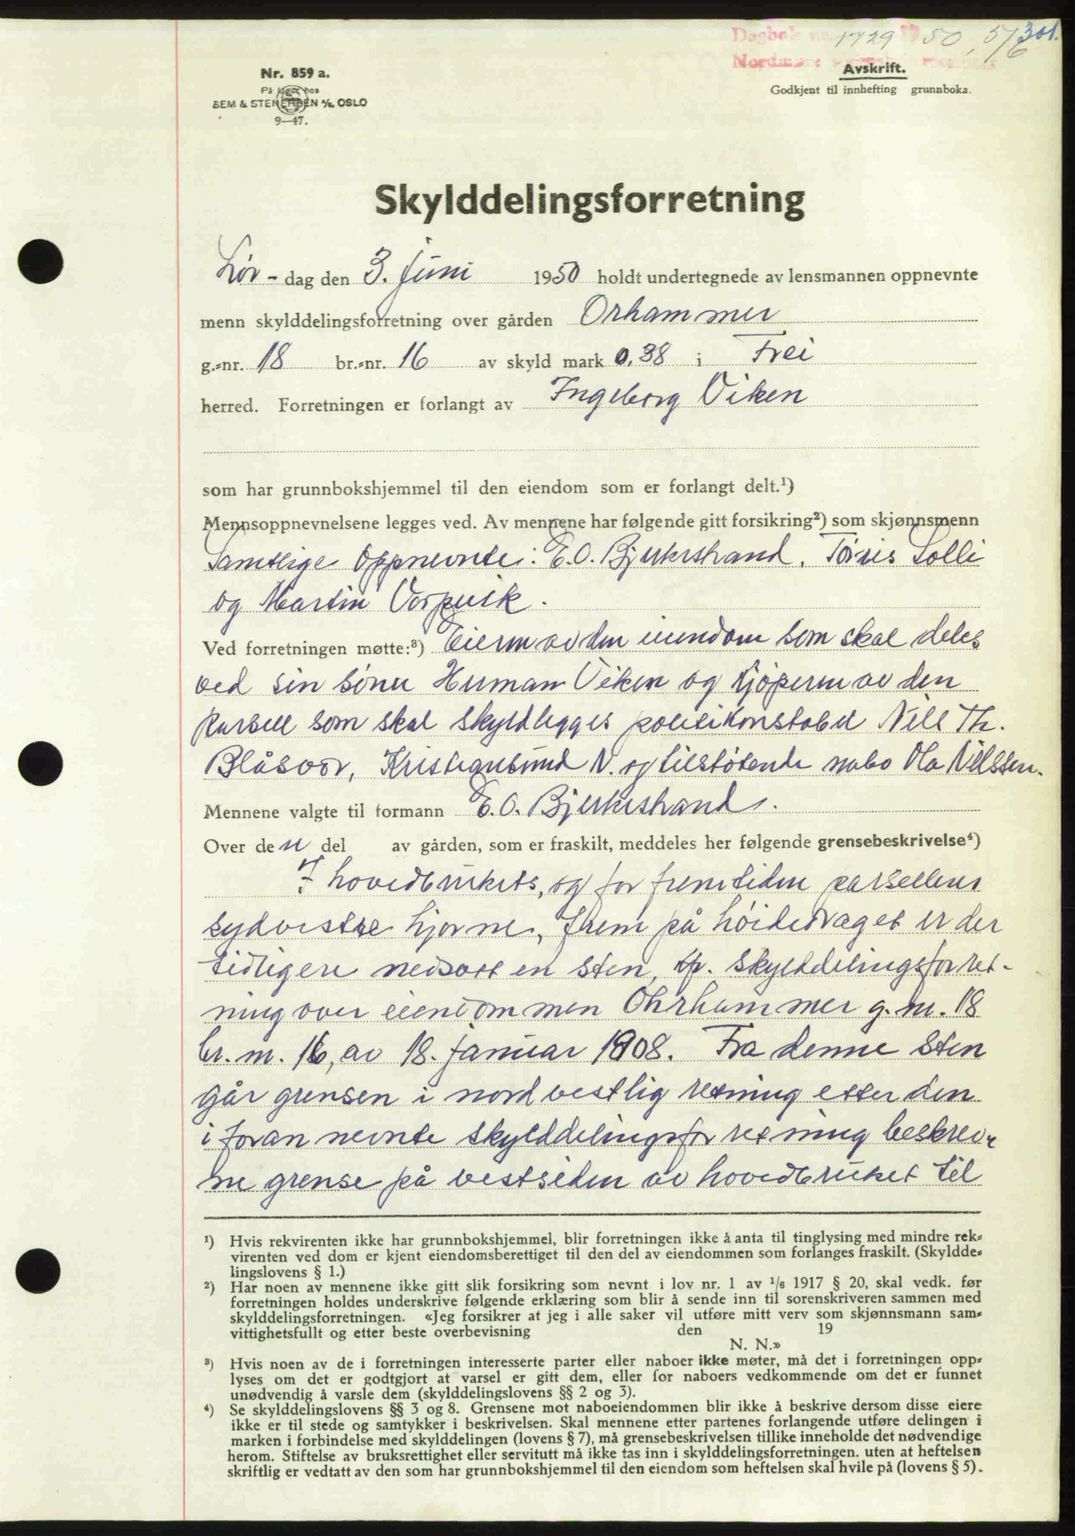 Dagbok nr. 1729 1950, 5/6 301.
Nordmøre
Avskrift.
Godkjent til innhefting grunnboka.
Nr. 859 a.
På lager hos
SEM & STENERSEN A/S, OSLO
9—47.
Skylddelingsforretning
Lør-dag den 3. juni 1950 holdt undertegnede av lensmannen oppnevnte
menn skylddelingsforretning over gården Orhammer
g.-nr. 18 br.-nr. 16 av skyld mark 0,38 i Frei
herred. Forretningen er forlangt av Ingeborg Viken
som har grunnbokshjemmel til den eiendom som er forlangt delt.¹)
Mennsoppnevnelsene legges ved. Av mennene har følgende gitt forsikring²) som skjønnsmenn
Samtlige oppnevnte: E.O. Bjerkestrand, Tøris Solli
og Martin Vorpvik.
Ved forretningen møtte:³) Eieren av den eiendom som skal deles
ved sin sønn Herman Viken og kjøperen av den
parsell som skal skyldlegges politikonstabel Nils Th.
Blåsvær, Kristiansund N. og tilstøtende nabo Ola Nilssen.
Mennene valgte til formann E.O. Bjerkestrand.
Over den del av gården, som er fraskilt, meddeles her følgende grensebeskrivelse⁴)
I hovedbrukets, og for fremtiden parsellens
sydvestre hjørne, frem på høidedraget er der
tidligere nedsatt en sten, kfr. skylddelingsforret-
ning over eiendommen Ohrhammer g.nr. 18
br.nr. 16, av 18. januar 1908. Fra denne sten
går grensen i nordvestlig retning etter den
i foran nevnte skylddelingsforretning beskrev-
ne grense på vestsiden av hovedbruket til
¹) Hvis rekvirenten ikke har grunnbokshjemmel, blir forretningen ikke å anta til tinglysing med mindre rek-
virenten ved dom er kjent eiendomsberettiget til den del av eiendommen som forlanges fraskilt. (Skyldde-
lingslovens § 1.)
²) Har noen av mennene ikke gitt slik forsikring som nevnt i lov nr. 1 av 1/6 1917 § 20, skal vedk. før
forretningen holdes underskrive følgende erklæring som blir å sende inn til sorenskriveren sammen med
skylddelingsforretningen. «Jeg forsikrer at jeg i alle saker vil utføre mitt verv som skjønnsmann sam-
vittighetsfullt og etter beste overbevisning den 19
N. N.»
³) Hvis noen av de i forretningen interesserte parter eller naboer ikke møter, må det i forretningen opp-
lyses om det er godtgjort at varsel er gitt dem, eller for naboers vedkommende om det er funnet
unødvendig å varsle dem (skylddelingslovens §§ 2 og 3).
⁴) Se skylddelingslovens §§ 3 og 8. Grensene mot naboeiendommen blir ikke å beskrive dersom disse eiere
ikke er til stede og samtykker i beskrivelsen. Skal mennene etter partenes forlangende utføre delingen i
marken i forbindelse med skylddelingen (lovens § 7), må grensebeskrivelsen tillike inneholde det nødvendige
herom. Stiftelse av bruksrettighet eller servitutt må ikke tas inn i skylddelingsforretningen, uten at heftelsen
skriftlig er vedtatt av den som har grunnbokshjemmel til den eiendom som heftelsen skal hvile på (lovens § 5).